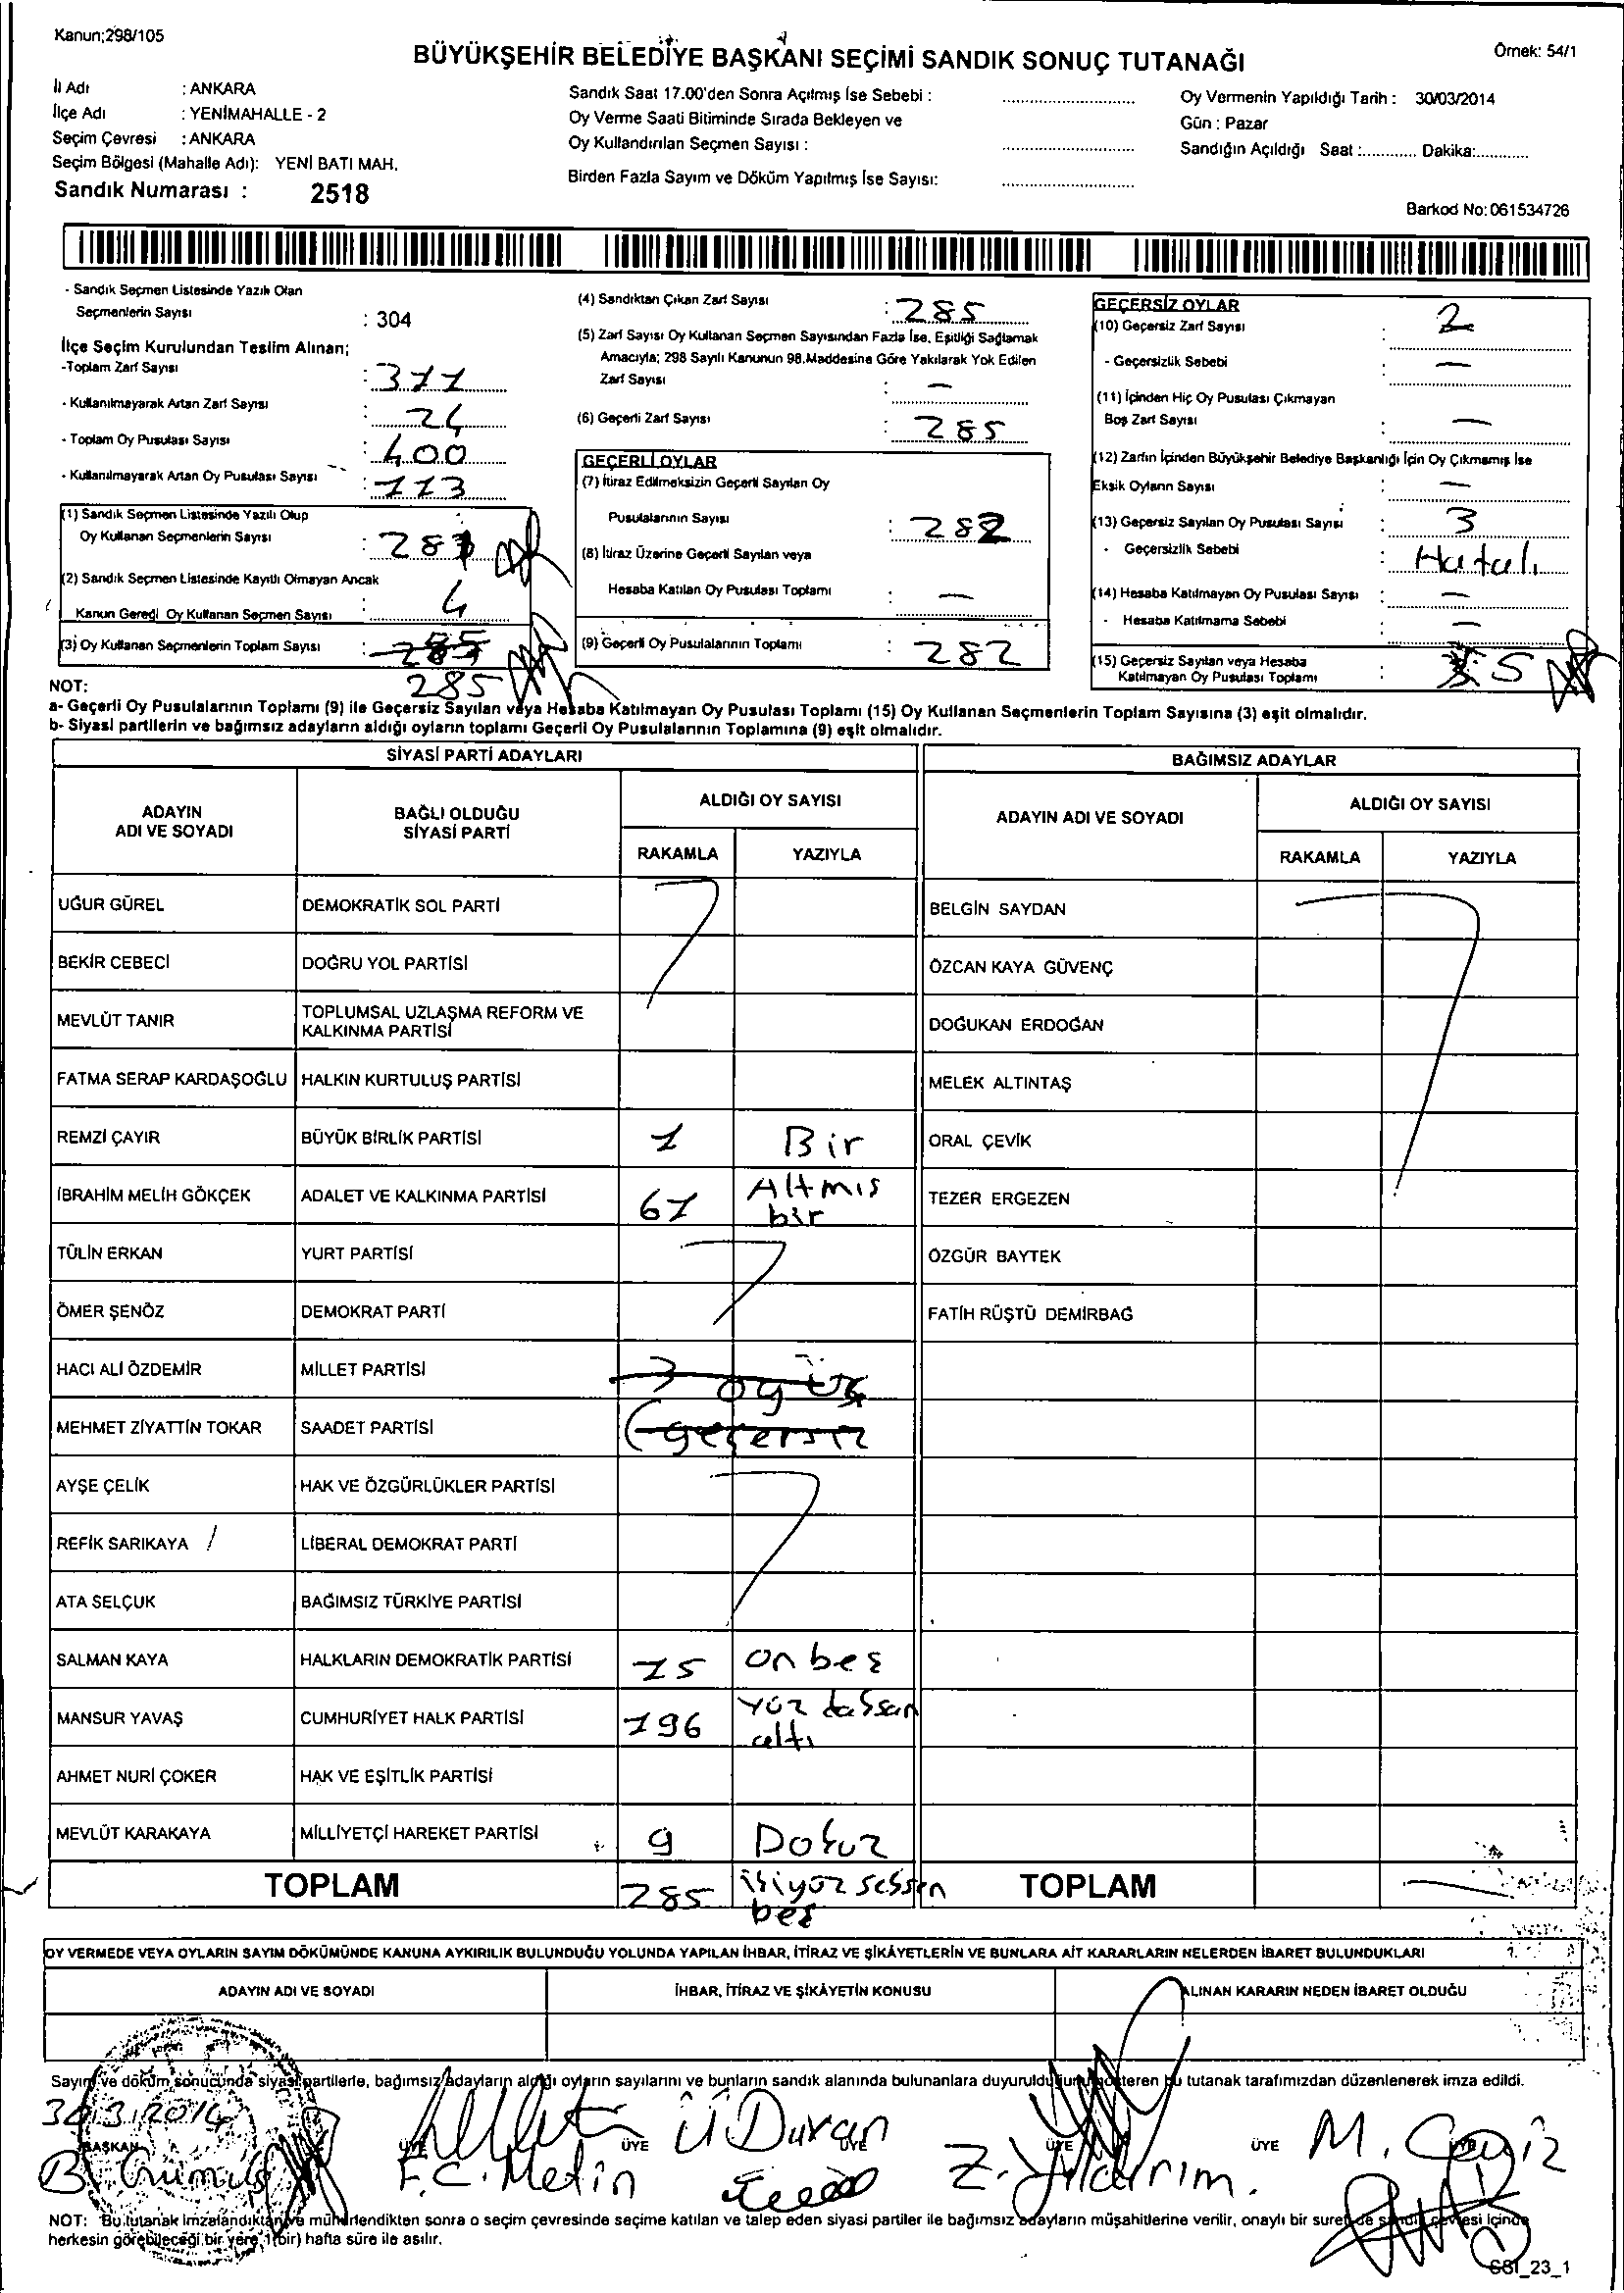 Kanun;298/105
BÜYÜKŞEHİR BELEDİYE BAŞKANI SEÇİMİ SANDIK SONUÇ TUTANAĞI
Örnek: 54/1
İl Adı : ANKARA
İlçe Adı : YENİMAHALLE - 2
Seçim Çevresi : ANKARA
Seçim Bölgesi (Mahalle Adı): YENİ BATI MAH.
Sandık Numarası : 2518
Sandık Saat 17.00'den Sonra Açılmış İse Sebebi :
Oy Verme Saati Bitiminde Sırada Bekleyen ve
Oy Kullandırılan Seçmen Sayısı :
Birden Fazla Sayım ve Döküm Yapılmış İse Sayısı:
Oy Vermenin Yapıldığı Tarih : 30/03/2014
Gün : Pazar
Sandığın Açıldığı Saat :............ Dakika:............
Barkod No:061534726
- Sandık Seçmen Listesinde Yazılı Olan
Seçmenlerin Sayısı : 304
İlçe Seçim Kurulundan Teslim Alınan;
-Toplam Zarf Sayısı : 311
- Kullanılmayarak Artan Zarf Sayısı : 24
- Toplam Oy Pusulası Sayısı : 400
- Kullanılmayarak Artan Oy Pusulası Sayısı : 113
(1) Sandık Seçmen Listesinde Yazılı Olup
Oy Kullanan Seçmenlerin Sayısı : 281
(2) Sandık Seçmen Listesinde Kayıtlı Olmayan Ancak
Kanun Gereği Oy Kullanan Seçmen Sayısı : 4
(3) Oy Kullanan Seçmenlerin Toplam Sayısı : 285
285
(4) Sandıktan Çıkan Zarf Sayısı : 285
(5) Zarf Sayısı Oy Kullanan Seçmen Sayısından Fazla İse, Eşitliği Sağlamak
Amacıyla; 298 Sayılı Kanunun 98.Maddesine Göre Yakılarak Yok Edilen
Zarf Sayısı : —
(6) Geçerli Zarf Sayısı : 285
GEÇERLİ OYLAR
(7) İtiraz Edilmeksizin Geçerli Sayılan Oy
Pusulalarının Sayısı : 282
(8) İtiraz Üzerine Geçerli Sayılan veya
Hesaba Katılan Oy Pusulası Toplamı : —
(9) Geçerli Oy Pusulalarının Toplamı : 282
GEÇERSİZ OYLAR
(10) Geçersiz Zarf Sayısı : 2
- Geçersizlik Sebebi : —
(11) İçinden Hiç Oy Pusulası Çıkmayan
Boş Zarf Sayısı : —
(12) Zarfın İçinden Büyükşehir Belediye Başkanlığı İçin Oy Çıkmamış İse
Eksik Oyların Sayısı : —
(13) Geçersiz Sayılan Oy Pusulası Sayısı : 3
- Geçersizlik Sebebi : Hatalı
(14) Hesaba Katılmayan Oy Pusulası Sayısı : —
- Hesaba Katılmama Sebebi : —
(15) Geçersiz Sayılan veya Hesaba
Katılmayan Oy Pusulası Toplamı : 5
NOT:
a- Geçerli Oy Pusulalarının Toplamı (9) ile Geçersiz Sayılan veya Hesaba Katılmayan Oy Pusulası Toplamı (15) Oy Kullanan Seçmenlerin Toplam Sayısına (3) eşit olmalıdır.
b- Siyasi partilerin ve bağımsız adayların aldığı oyların toplamı Geçerli Oy Pusulalarının Toplamına (9) eşit olmalıdır.
SİYASİ PARTİ ADAYLARI
BAĞIMSIZ ADAYLAR
ADAYIN ADI VE SOYADI
BAĞLI OLDUĞU SİYASİ PARTİ
ALDIĞI OY SAYISI
RAKAMLA YAZIYLA
ADAYIN ADI VE SOYADI
ALDIĞI OY SAYISI
RAKAMLA YAZIYLA
UĞUR GÜREL DEMOKRATİK SOL PARTİ BELGİN SAYDAN
BEKİR CEBECİ DOĞRU YOL PARTİSİ ÖZCAN KAYA GÜVENÇ
MEVLÜT TANIR TOPLUMSAL UZLAŞMA REFORM VE KALKINMA PARTİSİ DOĞUKAN ERDOĞAN
FATMA SERAP KARDAŞOĞLU HALKIN KURTULUŞ PARTİSİ MELEK ALTINTAŞ
REMZİ ÇAYIR BÜYÜK BİRLİK PARTİSİ 1 Bir ORAL ÇEVİK
İBRAHİM MELİH GÖKÇEK ADALET VE KALKINMA PARTİSİ 61 Altmıs bir TEZER ERGEZEN
TÜLİN ERKAN YURT PARTİSİ ÖZGÜR BAYTEK
ÖMER ŞENÖZ DEMOKRAT PARTİ FATİH RÜŞTÜ DEMİRBAĞ
HACI ALİ ÖZDEMİR MİLLET PARTİSİ 3 oy üç
MEHMET ZİYATTİN TOKAR SAADET PARTİSİ (geçersiz
AYŞE ÇELİK HAK VE ÖZGÜRLÜKLER PARTİSİ
REFİK SARIKAYA LİBERAL DEMOKRAT PARTİ
ATA SELÇUK BAĞIMSIZ TÜRKİYE PARTİSİ
SALMAN KAYA HALKLARIN DEMOKRATİK PARTİSİ 15 on beş
MANSUR YAVAŞ CUMHURİYET HALK PARTİSİ 196 yüz doksan altı
AHMET NURİ ÇOKER HAK VE EŞİTLİK PARTİSİ
MEVLÜT KARAKAYA MİLLİYETÇİ HAREKET PARTİSİ 9 Dokuz
TOPLAM 285 ikiyüz seksen beş TOPLAM —
OY VERMEDE VEYA OYLARIN SAYIM DÖKÜMÜNDE KANUNA AYKIRILIK BULUNDUĞU YOLUNDA YAPILAN İHBAR, İTİRAZ VE ŞİKÂYETLERİN VE BUNLARA AİT KARARLARIN NELERDEN İBARET BULUNDUKLARI
ADAYIN ADI VE SOYADI İHBAR, İTİRAZ VE ŞİKÂYETİN KONUSU ALINAN KARARIN NEDEN İBARET OLDUĞU
Sayım ve döküm sonucunda siyasi partilerle, bağımsız adayların aldığı oyların sayılarını ve bunların sandık alanında bulunanlara duyurulduğunu gösteren bu tutanak tarafımızdan düzenlenerek imza edildi.
30.3.2014
Ü Duran
BAŞKAN ÜYE ÜYE ÜYE ÜYE ÜYE
B. Gümüş F.C. Metin Z. Yıldırım. M. Cengiz
NOT: Bu tutanak imzalandıktan ve mühürlendikten sonra o seçim çevresinde seçime katılan ve talep eden siyasi partiler ile bağımsız adayların müşahitlerine verilir, onaylı bir suret de sandık çevresi içinde
herkesin görebileceği bir yere 1(bir) hafta süre ile asılır.
SSI_23_1